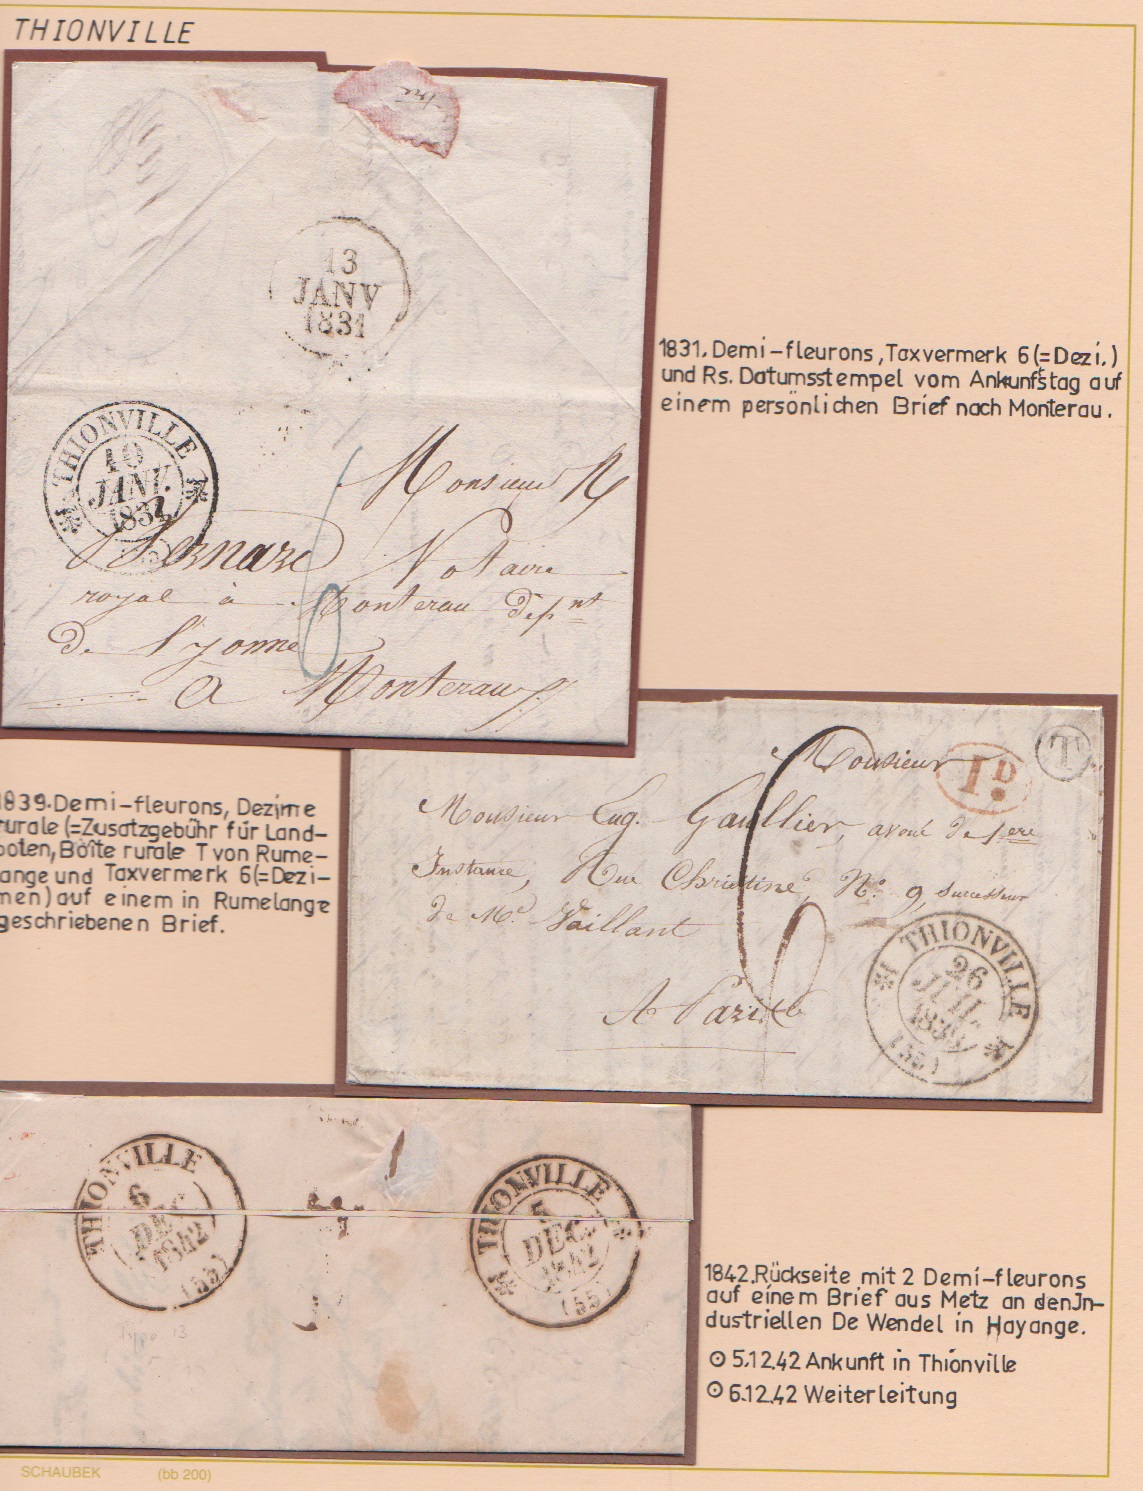 THIONVILLE
13
JANV
1831
THIONVILLE
10
JANV.
183
Monsieur
Notaire
royal à Monterau dép nt
De l'yonne
6
A Monterau
1831. Demi-fleurons, Taxvermerk 6 (=Dezi.)
und Rs. Datumsstempel vom Ankunfstag auf
einem persönlichen Brief nach Monterau.
Monsieur
1D
T
Monsieur Eug. Gaullier, avoué de 1ere
Instance, Rue Christine, No. 9, successeur
de Me. Vaillant
6
A Paris
THIONVILLE
26
JUIL.
1839
(55)
1839. Demi-fleurons, Dezime
rurale (=Zusatzgebühr für Land-
boten, Boîte rurale T von Rume-
lange und Taxvermerk 6 (=Dezi-
men) auf einem in Rumelange
geschriebenen Brief.
THIONVILLE
6
DEC
1842
(55)
THIONVILLE
5
DEC.
1842
(55)
1842. Rückseite mit 2 Demi-fleurons
auf einem Brief aus Metz an den Jn-
dustriellen De Wendel in Hayange.
⊙ 5.12.42 Ankunft in Thionville
⊙ 6.12.42 Weiterleitung
SCHAUBEK (bb 200)